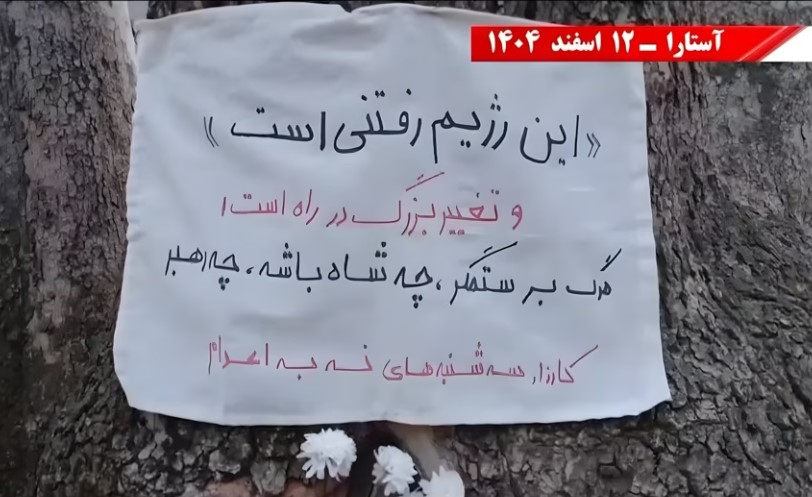 آستارا – ۱۲ اسفند ۱۴۰۴
«این رژیم رفتنی است»
و تغییر بزرگ در راه است!
مرگ بر ستمگر، چه شاه باشه، چه رهبر
کارزار سه‌شنبه‌های نه به اعدام